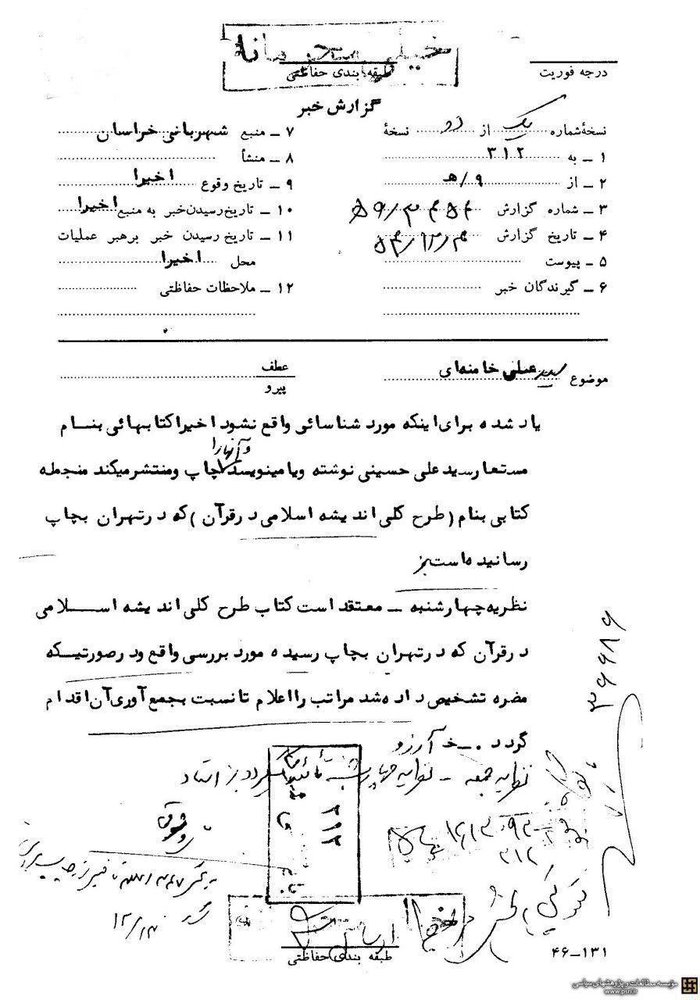 خیلی محرمانه
طبقه بندی حفاظتی
درجه فوریت
گزارش خبر
نسخهٔ شماره یک از دو نسخهٔ
۱ – به ۳۱۲
۲ – از ۹/هـ
۳ – شماره گزارش
۴ – تاریخ گزارش
۵ – پیوست
۶ – گیرندگان خبر
۷ – منبع شهربانی خراسان
۸ – منشأ
۹ – تاریخ وقوع اخیرا
۱۰ – تاریخ رسیدن خبر به منبع اخیرا
۱۱ – تاریخ رسیدن خبر برهبر عملیات
محل اخیرا
۱۲ – ملاحظات حفاظتی
موضوع سید علی خامنه‌ای
عطف
پیرو
یاد شده برای اینکه مورد شناسائی واقع نشود اخیرا کتابهائی بنام
مستعار سید علی حسینی نوشته ویا مینویسد و آنها را چاپ ومنتشر میکند منجمله
کتابی بنام (طرح کلی اندیشه اسلامی در قرآن) که در تهران بچاپ
رسانیده است
نظریه چهارشنبه – معتقد است کتاب طرح کلی اندیشه اسلامی
در قرآن که در تهران بچاپ رسیده مورد بررسی واقع ودر صورتیکه
مضره تشخیص داده شد مراتب را اعلام تا نسبت بجمع آوری آن اقدام
گردد .– خ آرزو
نظریه جمعه – نظریه چهارشنبه
۳۱۲
۳۱۲
۱۲/۱۳
طبقه بندی حفاظتی
۴۶–۱۳۱
مؤسسه مطالعات و پژوهشهای سیاسی